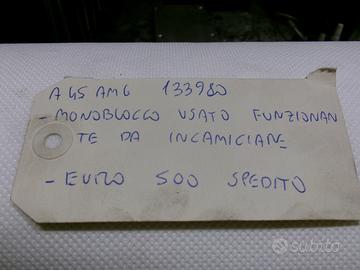 A 45 AMG 133980
- MONOBLOCCO USATO FUNZIONAN
TE DA INCAMICIARE
- EURO 500 SPEDITO
subito